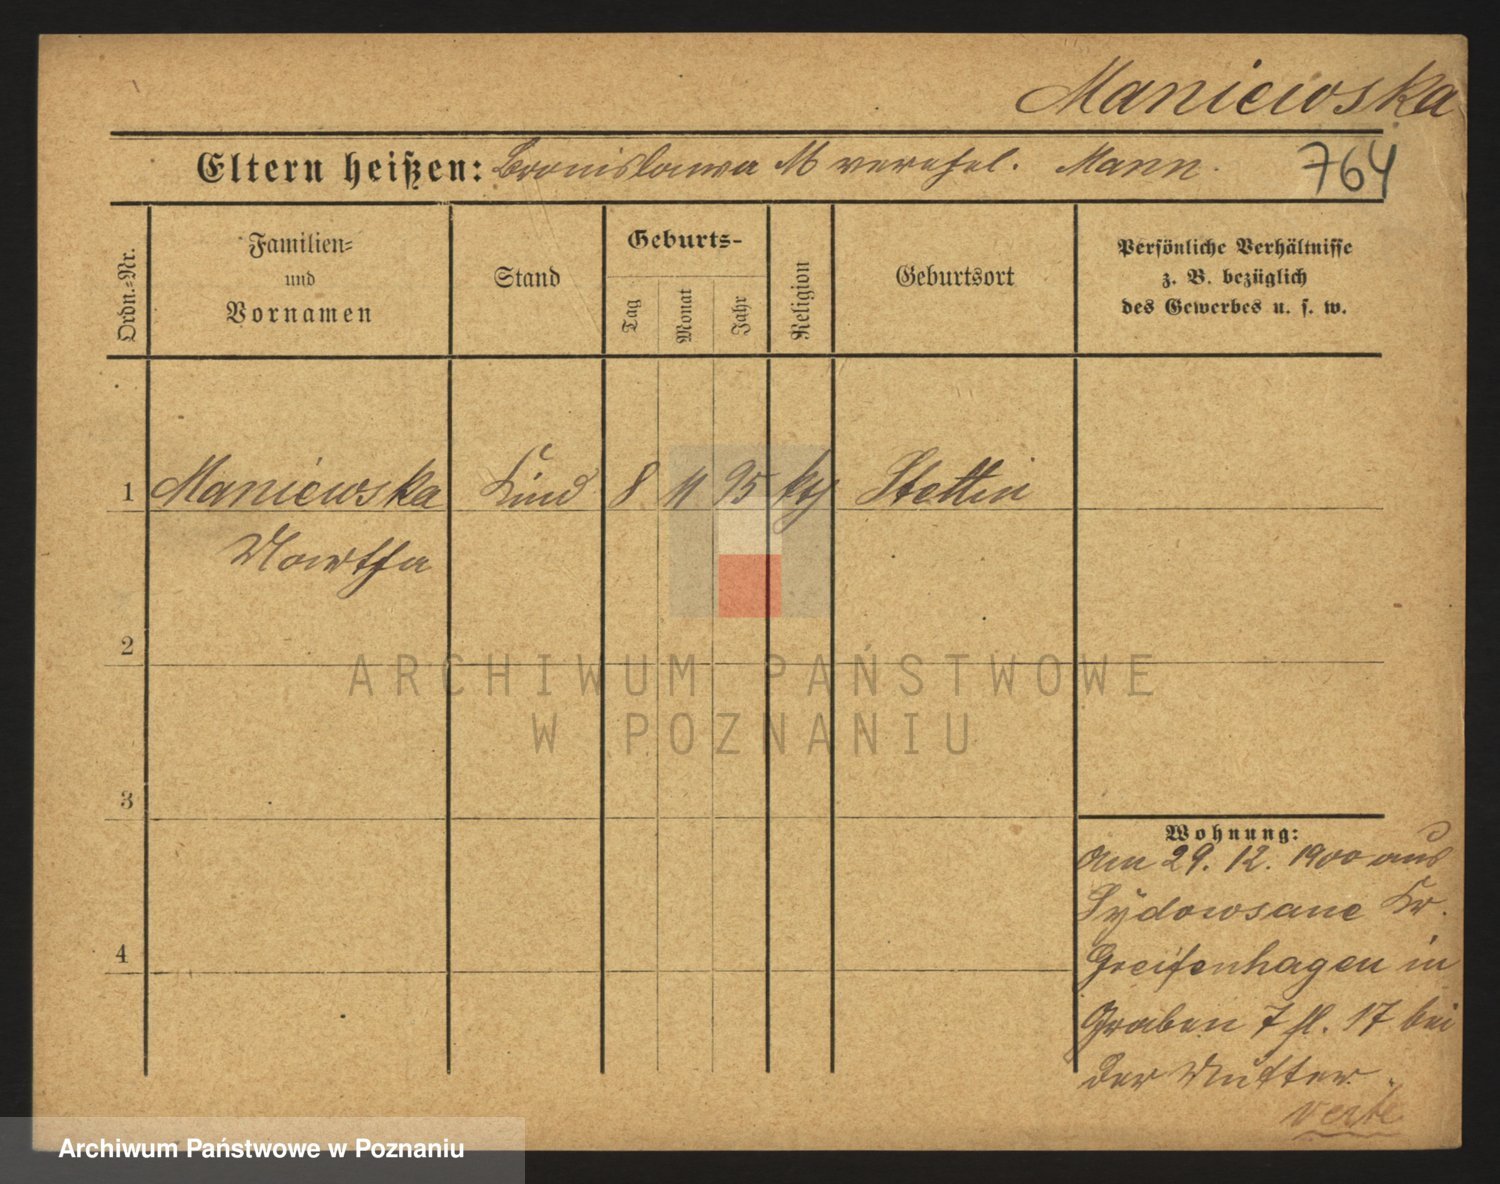 Maniewska
Eltern heißen: Bronislawa M verehel. Mann.
764
Ordn.=Nr.
Familien=
und
Vornamen
Stand
Geburts-
Tag
Monat
Jahr
Religion
Geburtsort
Persönliche Verhältnisse
z. B. bezüglich
des Gewerbes u. s. w.
1 Maniewska Kind 8 11 95 kth Stettin
Martha
2
ARCHIWUM PAŃSTWOWE
W POZNANIU
3
Wohnung:
Am 29. 12. 1900 aus
Sydowsaue Kr.
4
Greifenhagen in
Graben 7 fl. 17 bei
der Mutter.
verte
Archiwum Państwowe w Poznaniu